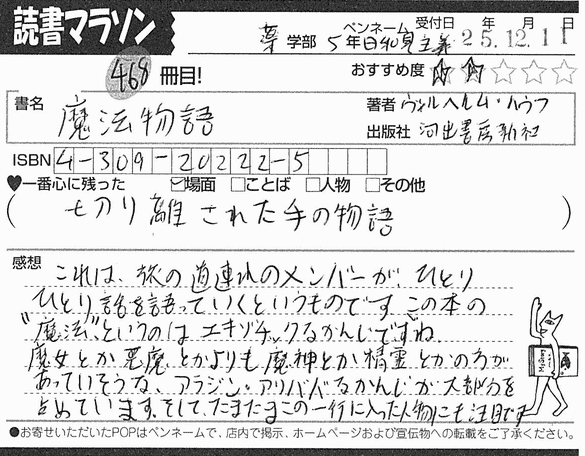 読書マラソン
薬 学部 ペンネーム 5年日和見主義 受付日 25年12月11日
468 冊目!
おすすめ度 ★★☆☆☆
書名 魔法物語
著者 ヴィルヘルム・ハウフ
出版社 河出書房新社
ISBN 4-309-20222-5
♥一番心に残った ☑場面 □ことば □人物 □その他
( 切り離された手の物語 )
感想
これは、旅の道連れのメンバーが、ひとり
ひとり話を語っていくというものです。この本の
"魔法"というのはエキゾチックなかんじですね
魔女とか悪魔とかよりも魔神とか精霊とかの方が
あっていそうな、アラジン・アリババなかんじが大部分を
占めています。そして、たまたまこの一行に入った人物にも注目です
●お寄せいただいたPOPはペンネームで、店内で掲示、ホームページおよび宣伝物への転載をご了承ください。